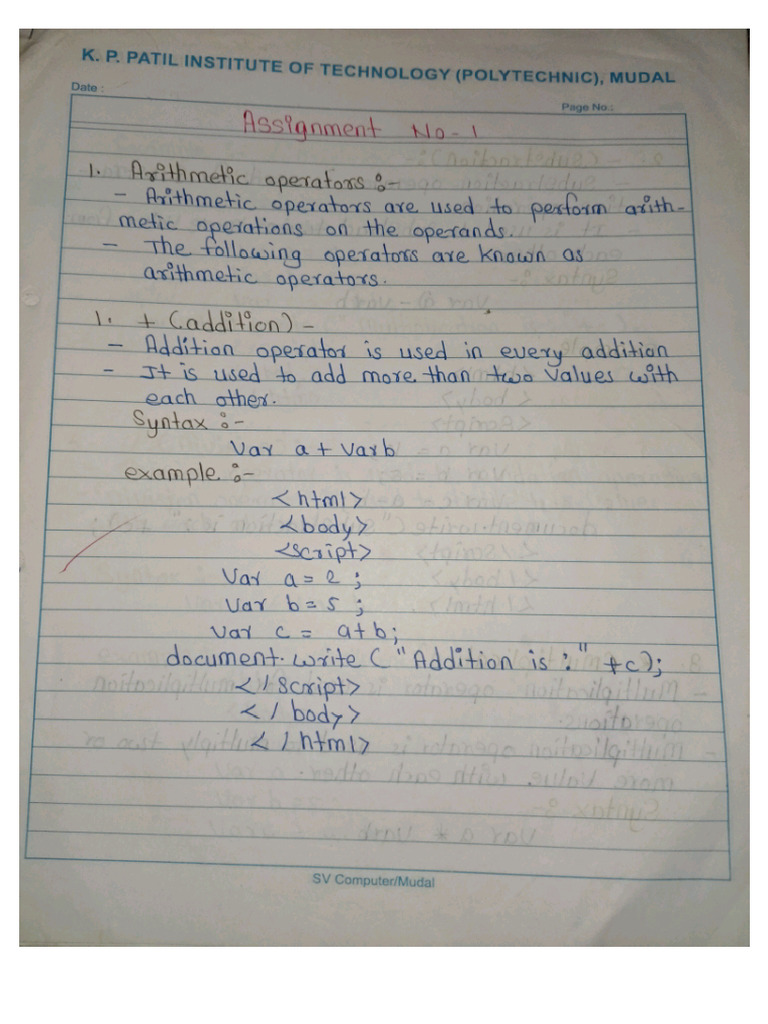 K. P. PATIL INSTITUTE OF TECHNOLOGY (POLYTECHNIC), MUDAL
Date :
Page No.:
Assignment No-1
1. Arithmetic operators :-
- Arithmetic operators are used to perform arith-
metic operations on the operands.
- The following operators are known as
arithmetic operators.
1. + (addition) -
- Addition operator is used in every addition
- It is used to add more than two values with
each other.
Syntax :-
Var a + Varb
example :-
<html>
<body>
<script>
Var a = 2 ;
Var b = 5 ;
Var c = a+b;
document.write ( "Addition is :" +c);
</script>
</ body>
</html>
SV Computer/Mudal